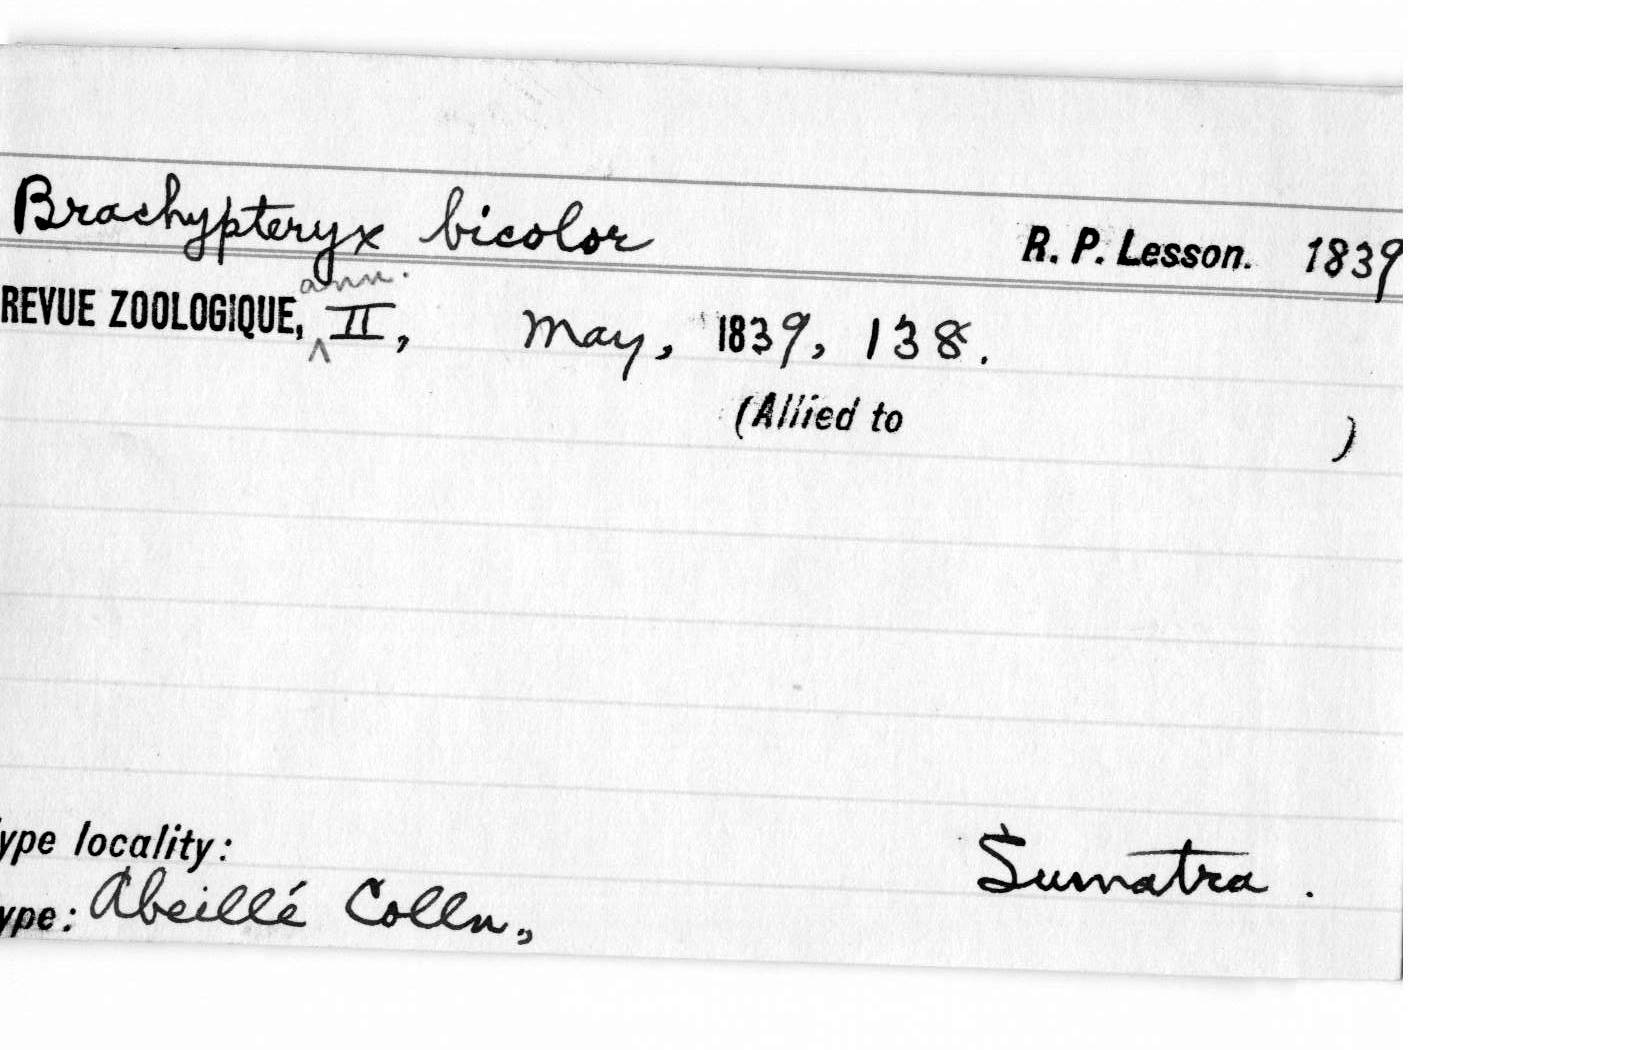 Brachypteryx bicolor R. P. Lesson. 1839
ann.
REVUE ZOOLOGIQUE, ^ II, May, 1839, 138.
(Allied to )
ype locality: Sumatra.
ype: Abeillé Colln.,